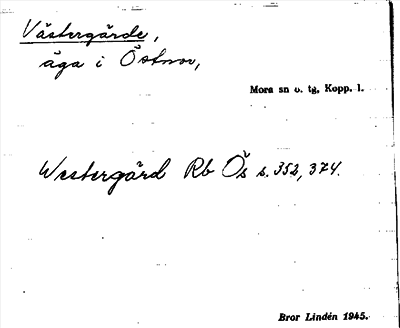 Västergärde,
äga i Östnor,
Mora sn o. tg, Kopp. l.
Westergärd Rb Ös s. 352, 374.
Bror Lindén 1945.